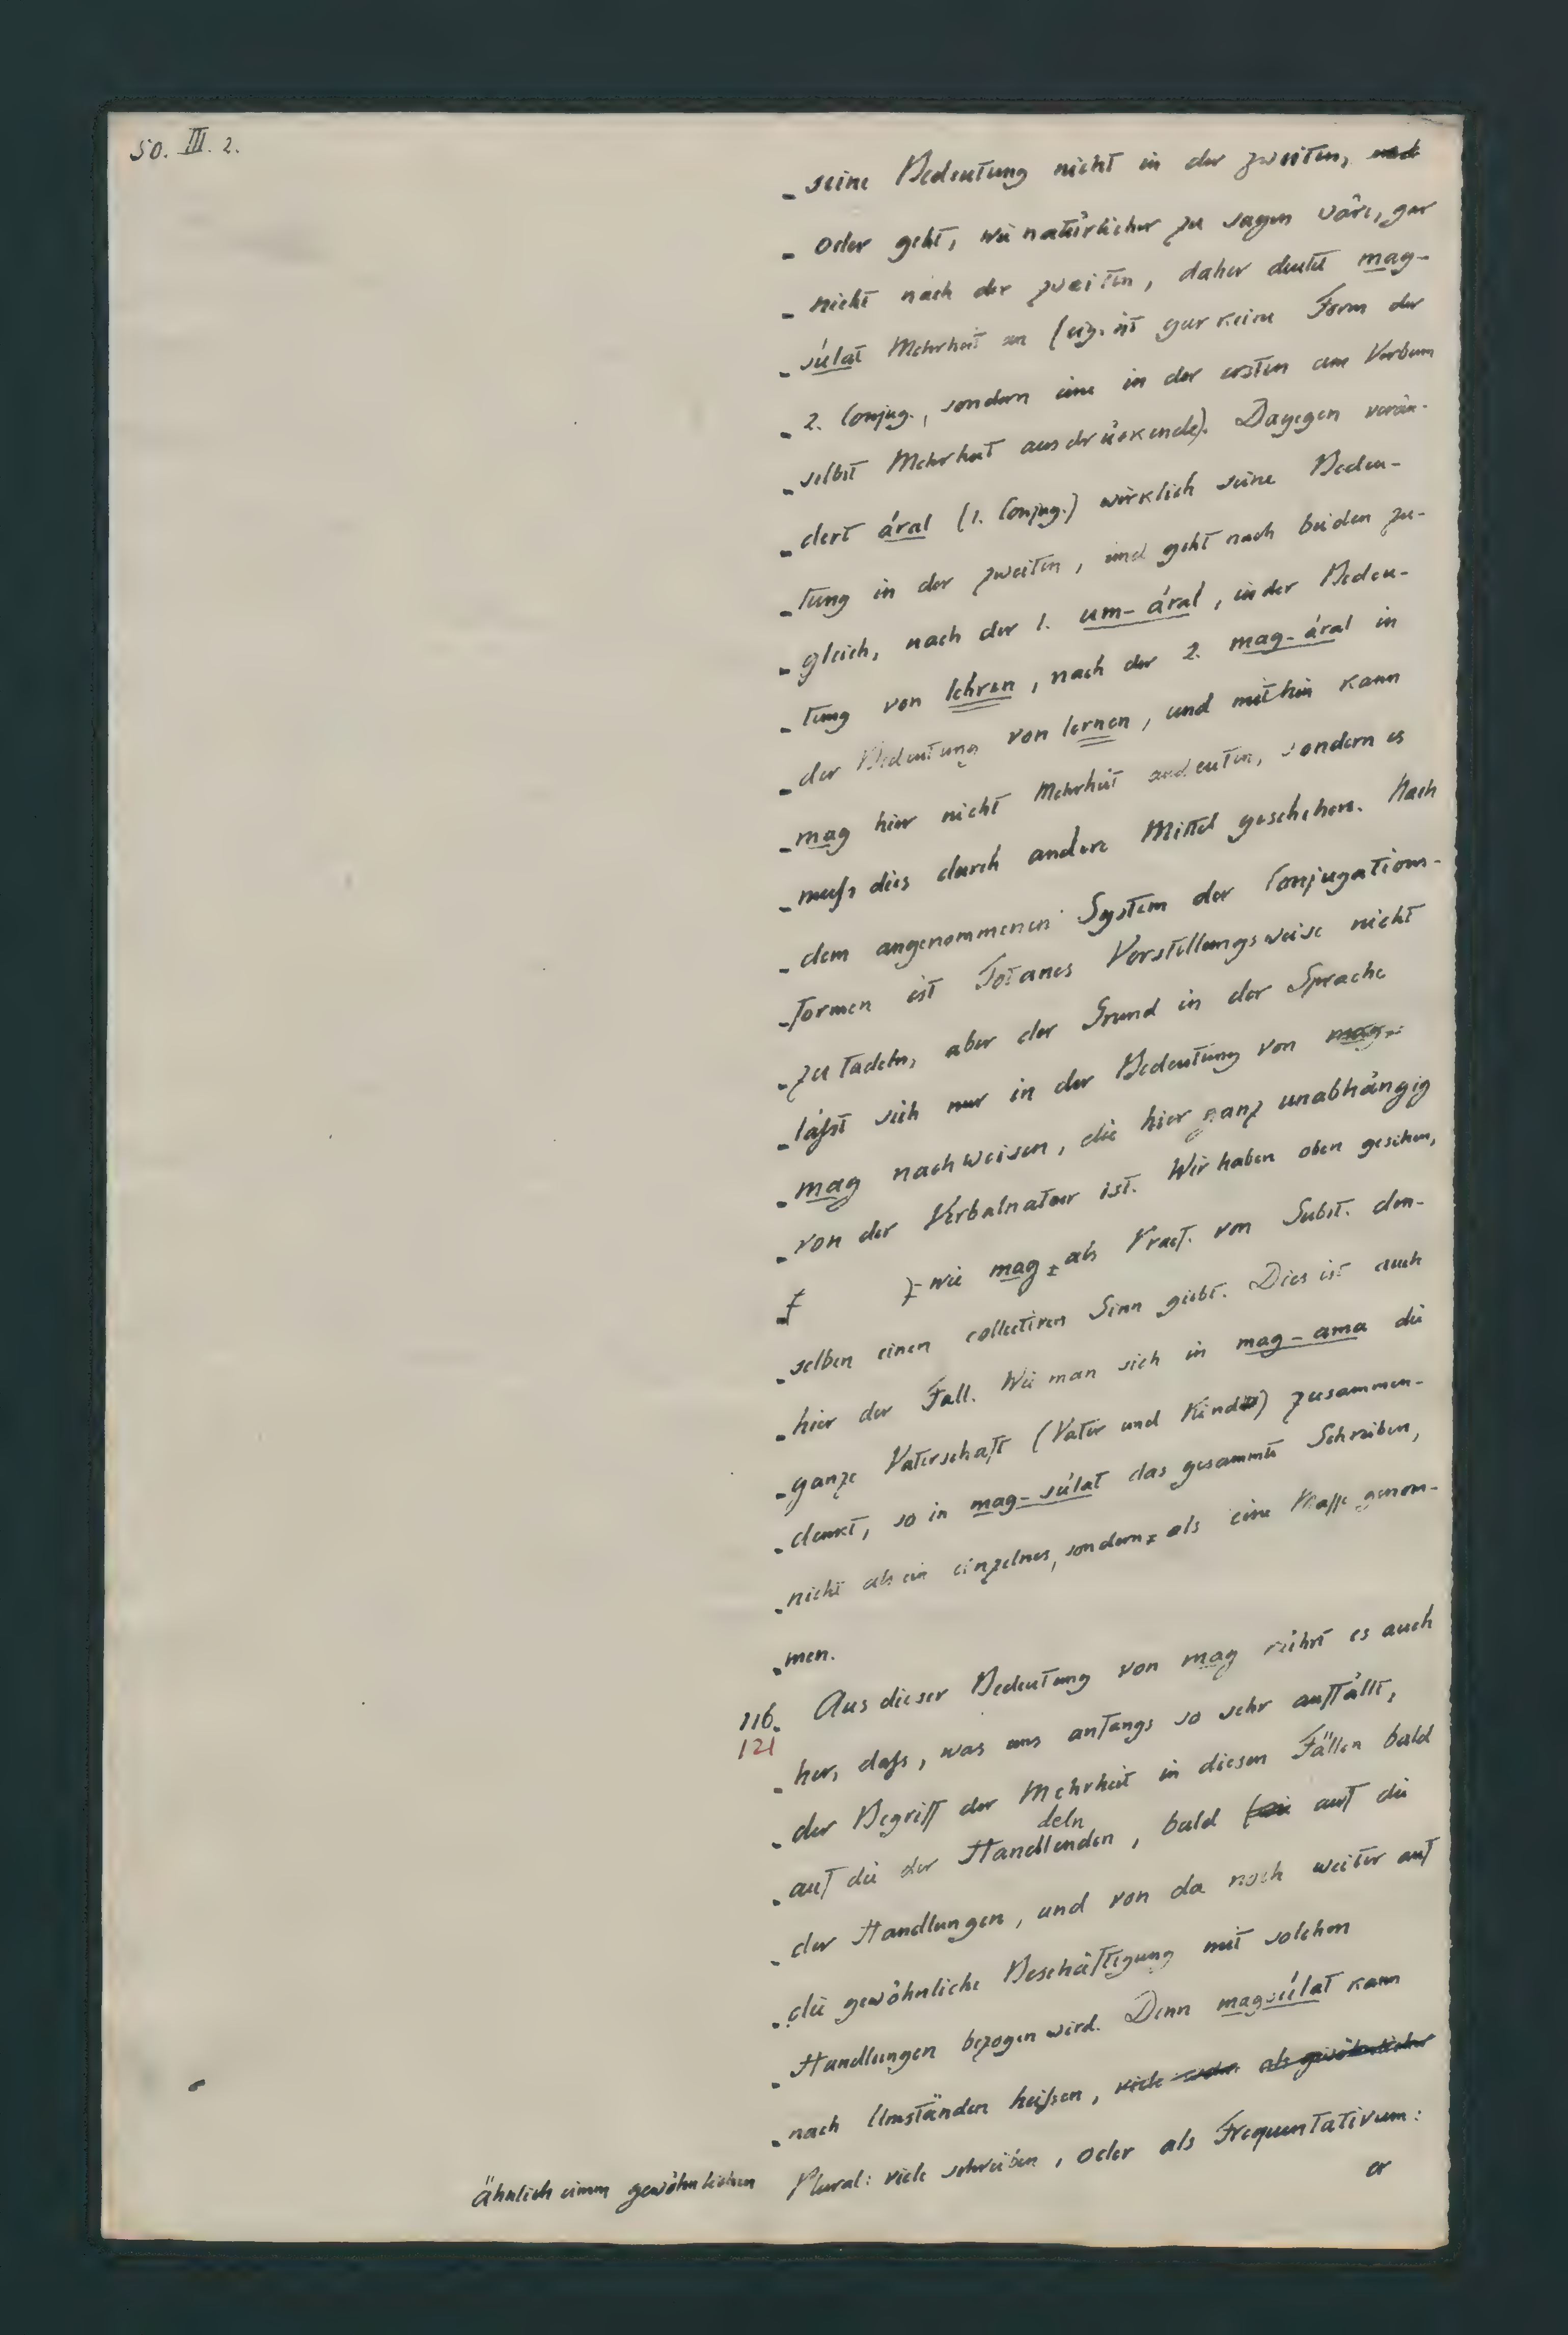 50. III. 2.
- seine Bedeutung nicht in der zweiten, und
- oder geht, wie natürlicher zu sagen wäre, gar
- nicht nach der zweiten, daher deutet mag-
- súlat Mehrheit an (eig. ist gar keine Form der
- 2. Conjug., sondern eine in der ersten am Verbum
- selbst Mehrheit ausdrückende). Dagegen verän-
- dert áral (1. Conjug.) wirklich seine Bedeu-
- tung in der zweiten, und geht nach beiden zu-
- gleich, nach der 1. um-áral, in der Bedeu-
- tung von lehren, nach der 2. mag-áral in
- der Bedeutung von lernen, und mithin kann
- mag hier nicht Mehrheit andeuten, sondern es
- muſs dies durch andere Mittel geschehen. Nach
- dem angenommenen System der Conjugations-
- formen ist Totanes Vorstellungsweise nicht
- zu tadeln, aber der Grund in der Sprache
- läſst sich nur in der Bedeutung von mag-
- mag nachweisen, die hier ganz unabhängig
- von der Verbalnatur ist. Wir haben oben gesehen,
wie mag als Praef. von Subst. den-
- selben einen collectiven Sinn giebt. Dies ist auch
- hier der Fall. Wie man sich in mag-ama die
- ganze Vaterschaft (Vater und Kind) zusammen-
- denkt, so in mag-súlat das gesammte Schreiben,
- nicht als ein einzelnes, sondern als eine Masse genom-
- men.
116. Aus dieser Bedeutung von mag rührt es auch
121
- her, daſs, was uns anfangs so sehr auffällt,
- der Begriff der Mehrheit in diesen Fällen bald
deln
- auf die der Handlenden, bald auf die
- der Handlungen, und von da noch weiter auf
- die gewöhnliche Beschäftigung mit solchen
- Handlungen bezogen wird. Denn magsúlat kann
- nach Umständen heiſsen, viele als gewöhnlicher
ähnlich einem gewöhnlichen Plural: viele schreiben, oder als Frequentativum:
er